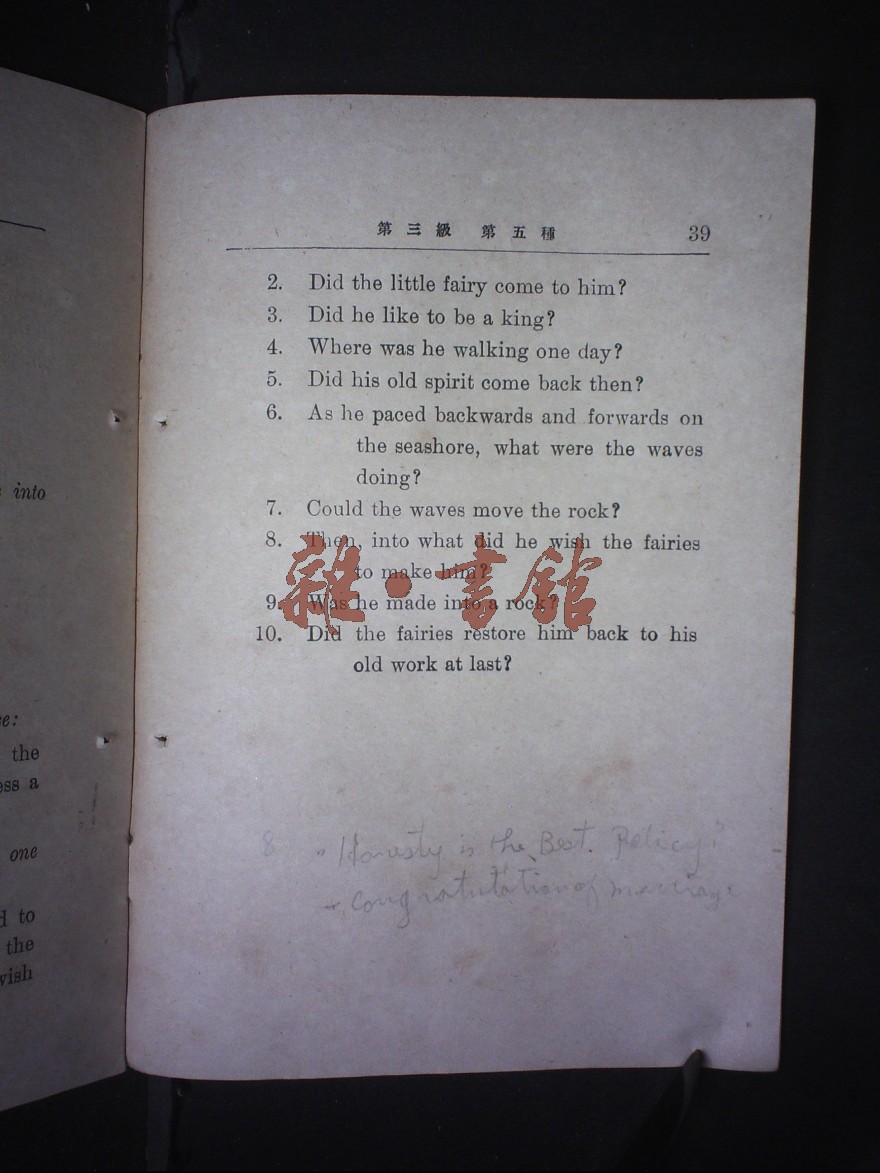 into
e:
the
ess a
one
d to
the
wish
第三級 第五種 39
2. Did the little fairy come to him?
3. Did he like to be a king?
4. Where was he walking one day?
5. Did his old spirit come back then?
6. As he paced backwards and forwards on
the seashore, what were the waves
doing?
7. Could the waves move the rock?
8. Then, into what did he wish the fairies
to make him?
9. Was he made into a rock?
10. Did the fairies restore him back to his
old work at last?
雜·書館
8 "Honesty is the Best. Policy"
Congratulation of marriage